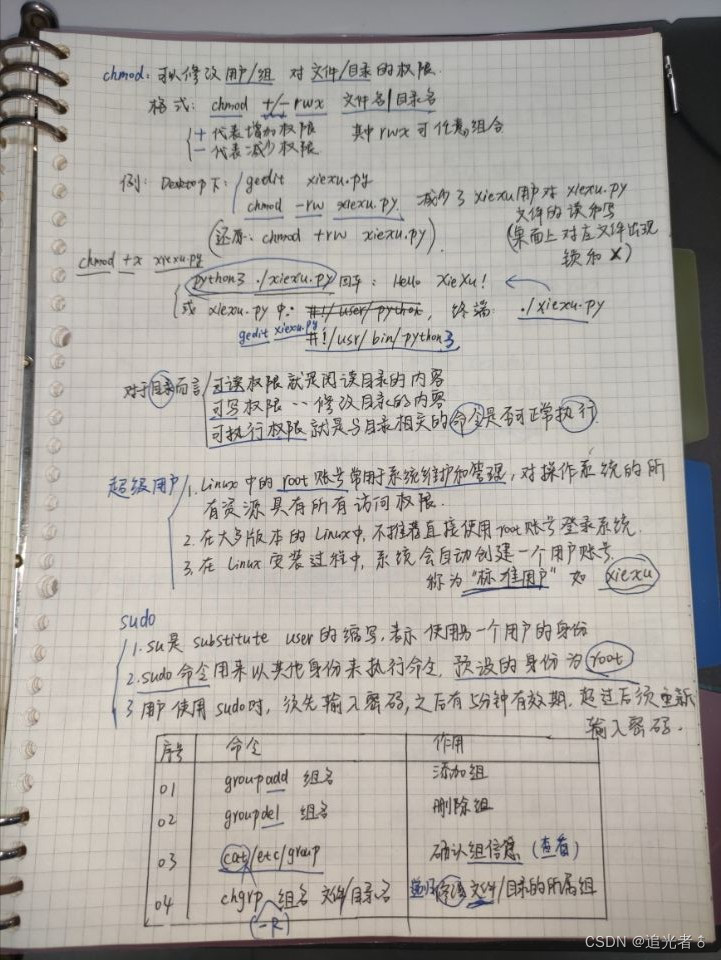 chmod: 可以修改 用户/组 对 文件/目录 的权限.
格式: chmod +/- rwx 文件名/目录名
+ 代表增加权限 其中rwx可任意组合
- 代表减少权限
例: Desktop下: gedit xiexu.py
chmod -rw xiexu.py. 减少了xiexu用户对xiexu.py
文件的读和写
(还原: chmod +rw xiexu.py) (桌面上对应文件出现
锁和X)
chmod +x xiexu.py
python3 ./xiexu.py 回车: Hello XieXu!
或 xiexu.py 中: #!/user/python, 终端: ./xiexu.py
gedit xiexu.py #!/usr/bin/python3
对于目录而言 可读权限就是阅读目录的内容
可写权限 ‥ 修改目录的内容
可执行权限就是与目录相关的命令是否可正常执行
超级用户 1. Linux中的root账号常用于系统维护和管理, 对操作系统的所
有资源具有所有访问权限.
2. 在大多版本的Linux中, 不推荐直接使用root账号登录系统.
3. 在Linux安装过程中, 系统会自动创建一个用户账号,
称为"标准用户" 如 xiexu
sudo
1. su是substitute user的缩写, 表示使用另一个用户的身份
2. sudo命令用来以其他身份来执行命令, 预设的身份为root
3 用户使用sudo时, 须先输入密码, 之后有5分钟有效期. 超过后须重新
输入密码.
序号 命令 作用
01 groupadd 组名 添加组
02 groupdel 组名 删除组
03 cat /etc/group 确认组信息 (查看)
04 chgrp 组名 文件/目录名 递归修改文件/目录的所属组
(-R)
CSDN @追光者♂